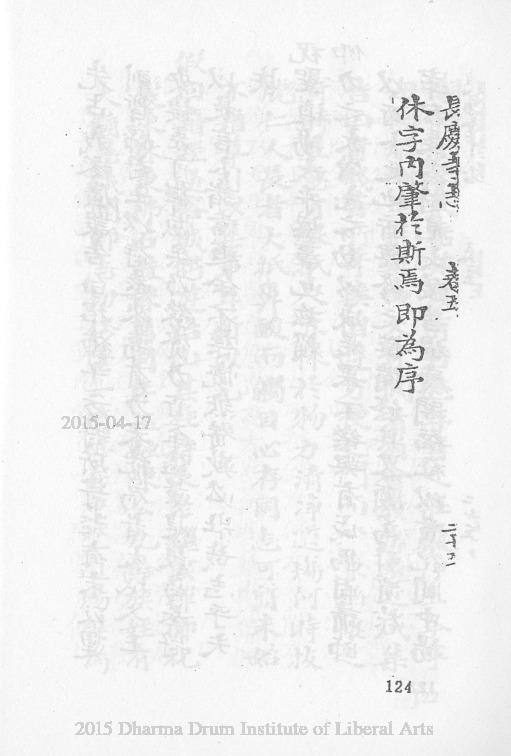 長慶寺志 卷五
休字內肇於斯焉即為序
2015-04-17
124
2015 Dharma Drum Institute of Liberal Arts